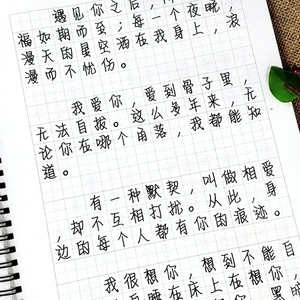 遇见你之后,
福如期而至;每一个夜晚,
漫天的星空洒在我身上,浪
漫而不忧伤。
我爱你,爱到骨子里,
无法自拔。这么多年来,无
论你在哪个角落,我都能知
道。
有一种默契,叫做相爱
,却不互相打扰。从此,身
边的每个人都有你的痕迹。
我很想你,想到不能自
睡在床上在想你,